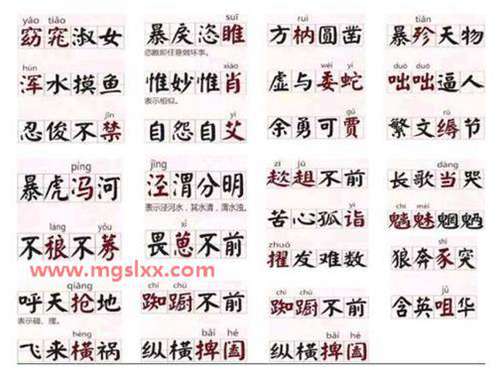 yáo tiǎo suī ruì tiǎn
窈窕淑女 暴戾恣睢 方枘圆凿 暴殄天物
恣睢即任意做坏事。
hún yì xiào wēi yí duō duō
浑水摸鱼 惟妙惟肖 虚与委蛇 咄咄逼人
表示相似。
jīn yì gǔ rù
忍俊不禁 自怨自艾 余勇可贾 繁文缛节
píng jīng zī jū dàng
暴虎冯河 泾渭分明 趑趄不前 长歌当哭
表示泾河水,其水清,渭水浊。
láng yǒu xǐ yì chī mèi
不稂不莠 畏葸不前 苦心孤诣 魑魅魍魉
www.mgslxx.com
zhuó
擢发难数 狼奔豕突
qiāng chí chú chí chú jǔ
呼天抢地 踟蹰不前 踟蹰不前 含英咀华
表示碰、撞。
hèng bǎi hé bǎi hé
飞来横祸 纵横捭阖 纵横捭阖